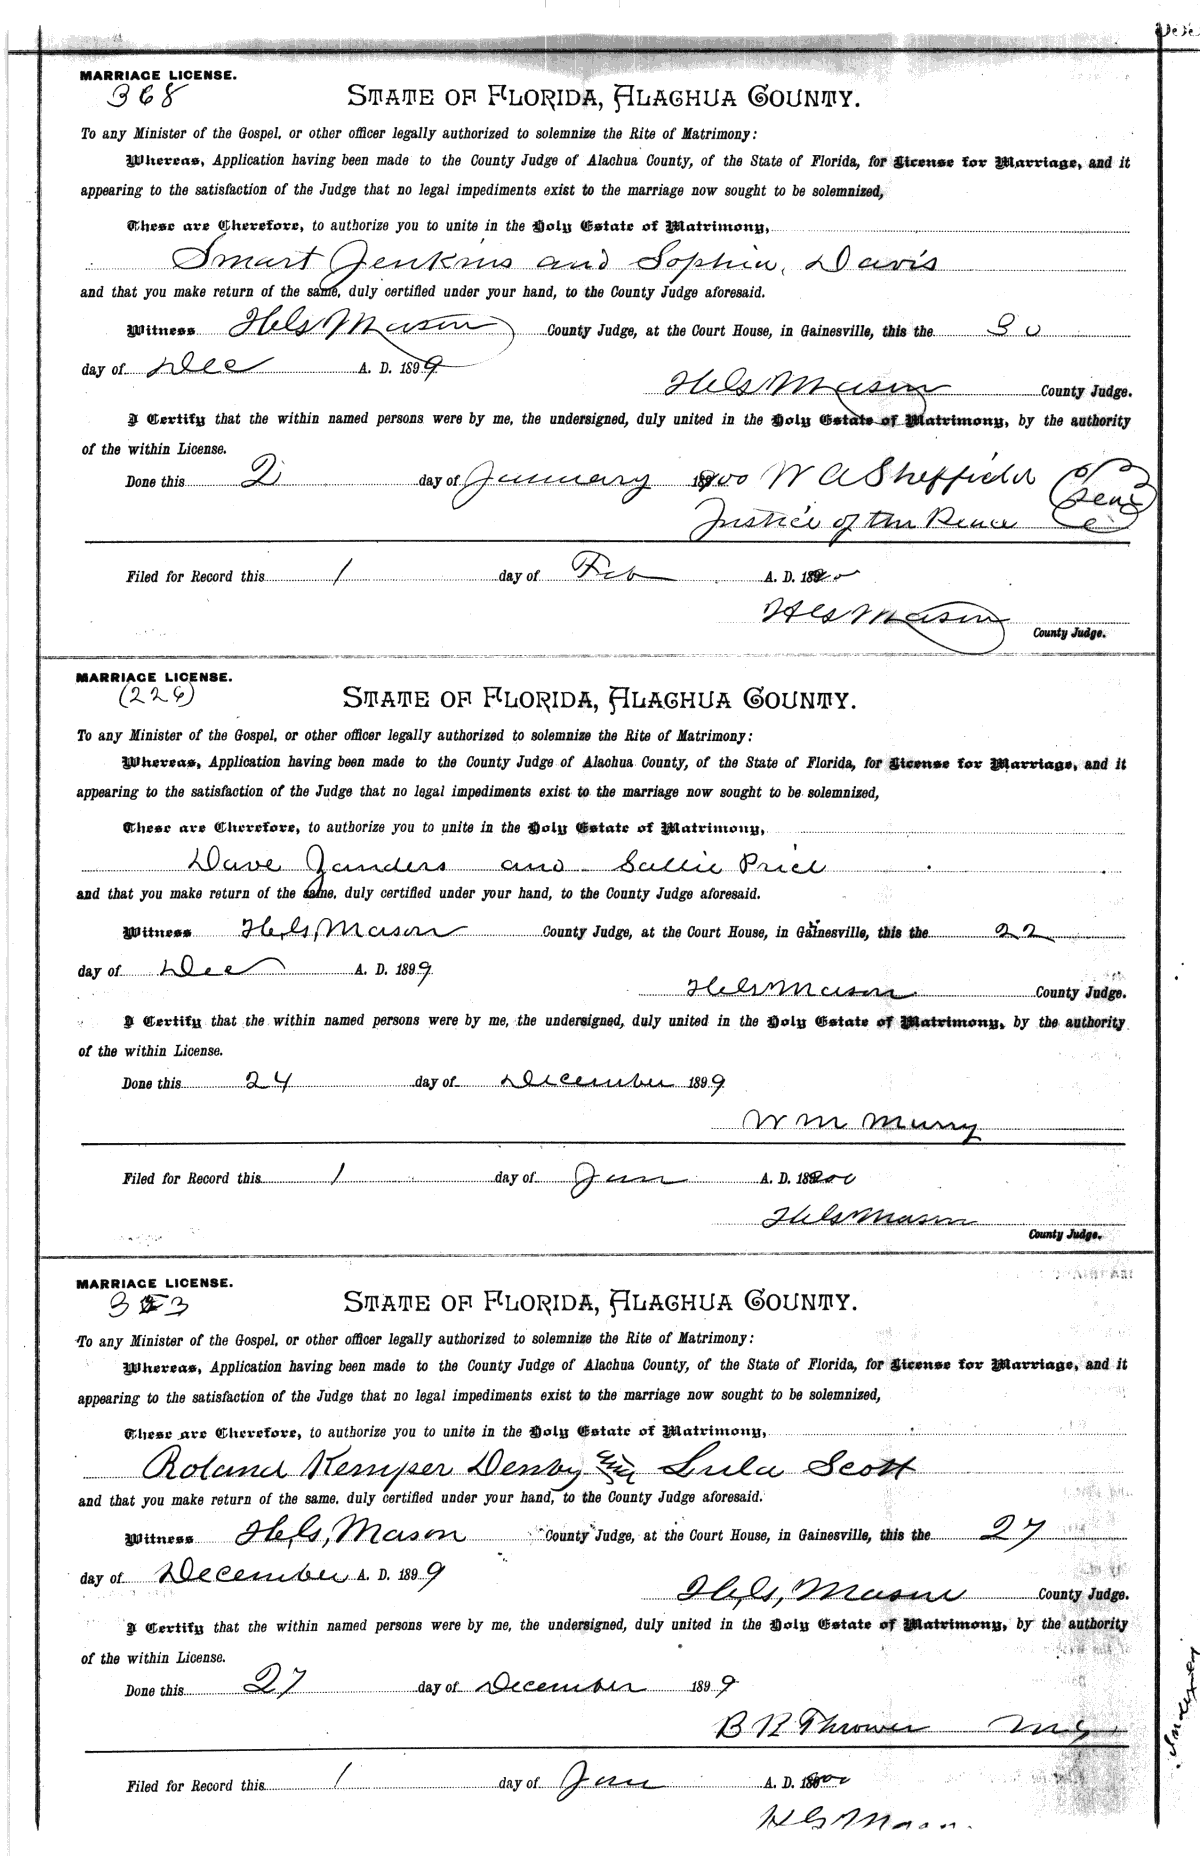 MARRIAGE LICENSE.
368
STATE OF FLORIDA, ALACHUA COUNTY.
To any Minister of the Gospel, or other officer legally authorized to solemnize the Rite of Matrimony:
Whereas, Application having been made to the County Judge of Alachua County, of the State of Florida, for License for Marriage, and it
appearing to the satisfaction of the Judge that no legal impediments exist to the marriage now sought to be solemnized,
These are Therefore, to authorize you to unite in the Holy Estate of Matrimony,
Smart Jenkins and Sophia Davis
and that you make return of the same, duly certified under your hand, to the County Judge aforesaid.
Witness H.G. Mason County Judge, at the Court House, in Gainesville, this the 30
day of Dec A. D. 1899
H.G. Mason County Judge.
I Certify that the within named persons were by me, the undersigned, duly united in the Holy Estate of Matrimony, by the authority
of the within License.
Done this 2 day of January 1900 W A Sheffield
Justice of the Peace Seal
Filed for Record this 1 day of Feb A. D. 1900
H G Mason
County Judge.
MARRIAGE LICENSE.
(226)
STATE OF FLORIDA, ALACHUA COUNTY.
To any Minister of the Gospel, or other officer legally authorized to solemnize the Rite of Matrimony:
Whereas, Application having been made to the County Judge of Alachua County, of the State of Florida, for License for Marriage, and it
appearing to the satisfaction of the Judge that no legal impediments exist to the marriage now sought to be solemnized,
These are Therefore, to authorize you to unite in the Holy Estate of Matrimony,
Dave Zanders and Sallie Price
and that you make return of the same, duly certified under your hand, to the County Judge aforesaid.
Witness H.G. Mason County Judge, at the Court House, in Gainesville, this the 22
day of Dec A. D. 1899
H.G. Mason County Judge.
I Certify that the within named persons were by me, the undersigned, duly united in the Holy Estate of Matrimony, by the authority
of the within License.
Done this 24 day of December 1899
W M Murry
Filed for Record this 1 day of Jan A. D. 1900
H G Mason
County Judge.
MARRIAGE LICENSE.
STATE OF FLORIDA, ALACHUA COUNTY.
To any Minister of the Gospel, or other officer legally authorized to solemnize the Rite of Matrimony:
Whereas, Application having been made to the County Judge of Alachua County, of the State of Florida, for License for Marriage, and it
appearing to the satisfaction of the Judge that no legal impediments exist to the marriage now sought to be solemnized,
These are Therefore, to authorize you to unite in the Holy Estate of Matrimony,
Roland Kemper Denby and Lula Scott
and that you make return of the same, duly certified under your hand, to the County Judge aforesaid.
Witness H.G. Mason County Judge, at the Court House, in Gainesville, this the 27
day of December A. D. 1899
H.G. Mason County Judge.
I Certify that the within named persons were by me, the undersigned, duly united in the Holy Estate of Matrimony, by the authority
of the within License.
Done this 27 day of December 1899
B R Thrower M G
Filed for Record this 1 day of Jan A. D. 1900
H G Mason